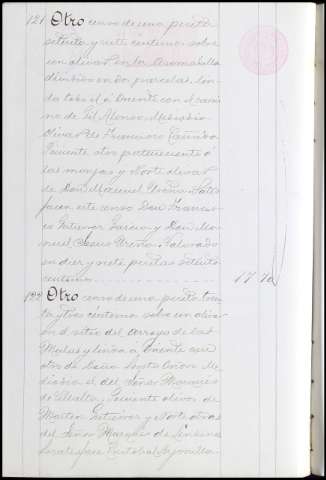 121 Otro censo de una peseta
setenta y siete céntimos sobre
un olivar en la
dividido en dos parcelas, lin
da todo él á Oriente con el cami
no de Gil Alonso, Mediodia
olivar de Francisco Cañada
Poniente otro perteneciente á
las monjas y Norte olivar
de Don Manuel Ureña. Satis
facen este censo Don Francis
co Gutierrez Garcia y Don Ma
nuel Ureña, Valorado
en diez y siete pesetas setenta
céntimos 17 70
122 Otro censo de una peseta trein
ta y tres céntimos sobre un olivar
en el sitio del Arroyo de las
Mulas y linda á Oriente con
otro de Me
diodia el del Señor Marques
de Poniente olivar de
Gutierrez y Norte otros
del Señor Marques de
Cristobal